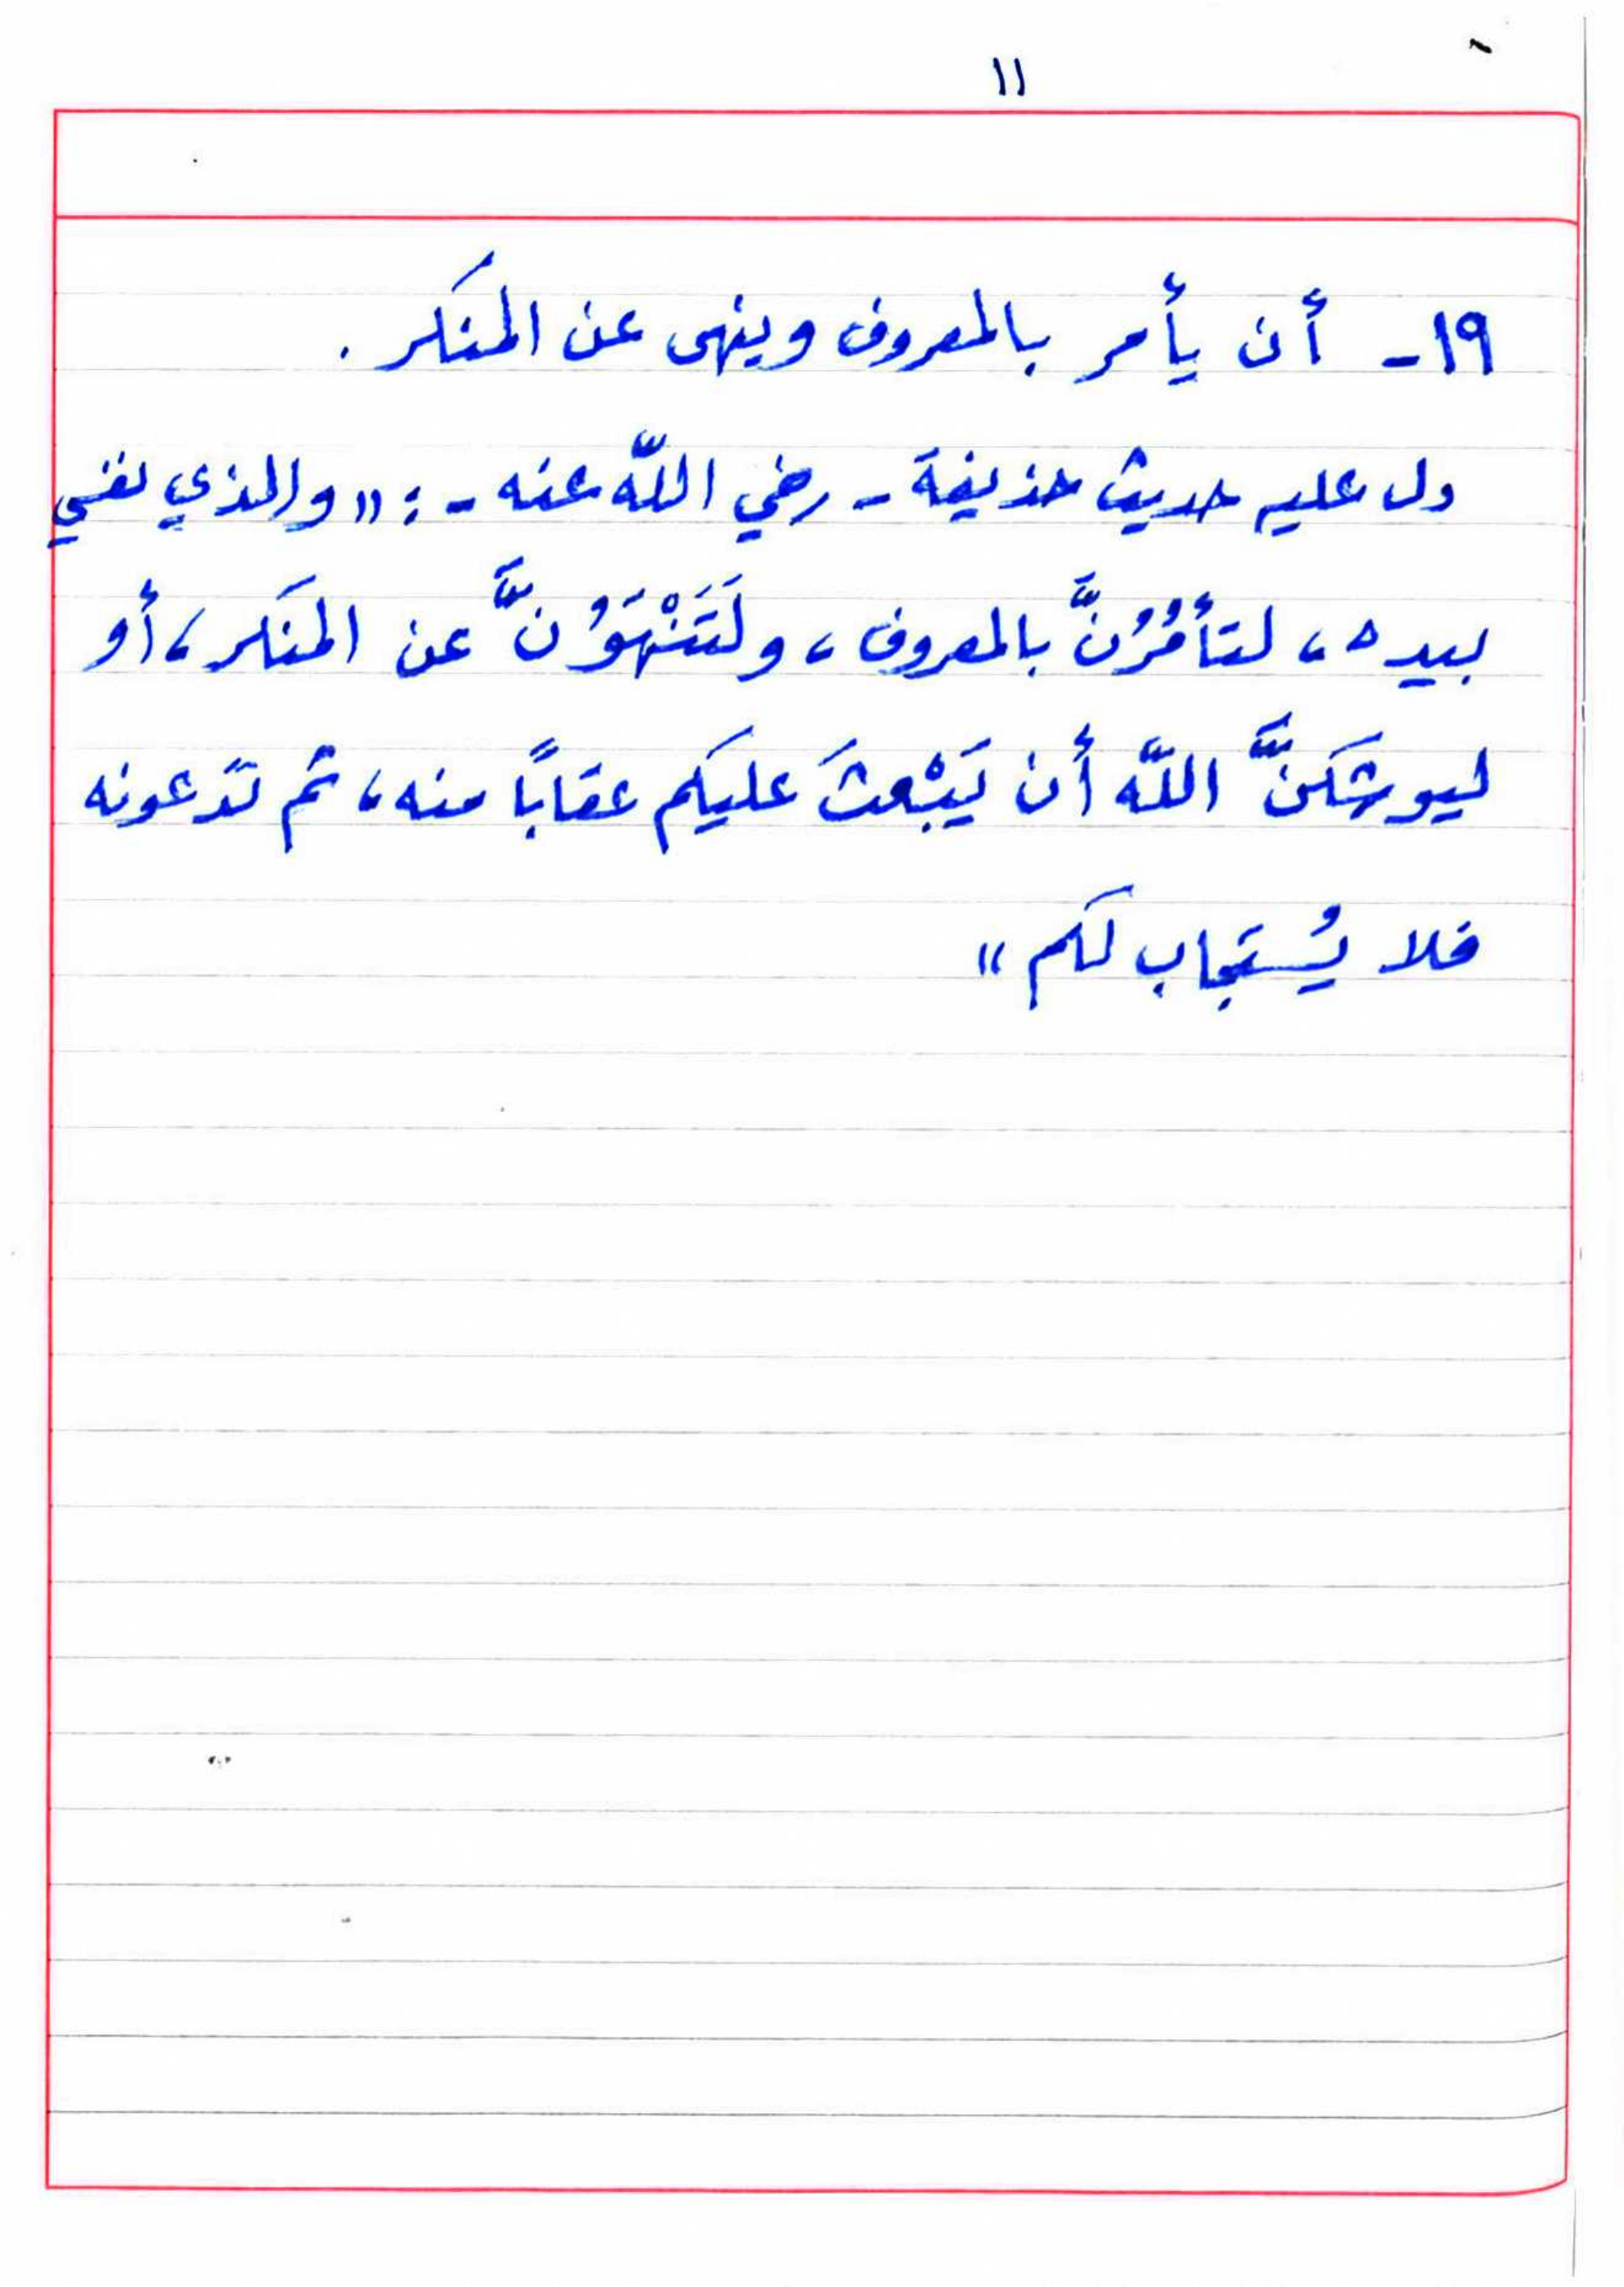 ١١
١٩- أن يأمر بالمعروف وينهى عن المنكر .
دل عليه حديث حذيفة - رضي اللّه عنه - : "والذي نفسي
بيده ، لتأمُرُنَّ بالمعروف ، ولَتَنْهَوُنَّ عن المنكر ، أو
ليوشكنَّ اللّه أن يَبْعثَ عليكم عقابًا منه ، ثم تدَعونه
فلا يُستجاب لكم "